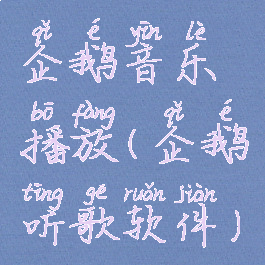 qǐ é yīn lè
企鹅音乐
bō fàng qǐ é
播放(企鹅
tīng gē ruǎn jiàn
听歌软件)